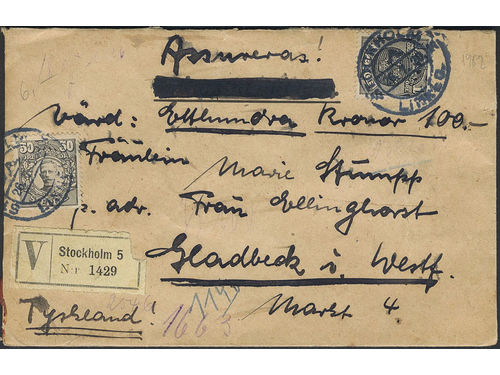 Assureras!
Värd: Etthundra Kronor 100.-
Fräulein
Marie Stumpp
p. adr. Frau Ellinghorst
Gladbeck i. Westf.
Markt 4
Tyskland!
V
Stockholm 5
Nr 1429
30 30
1663